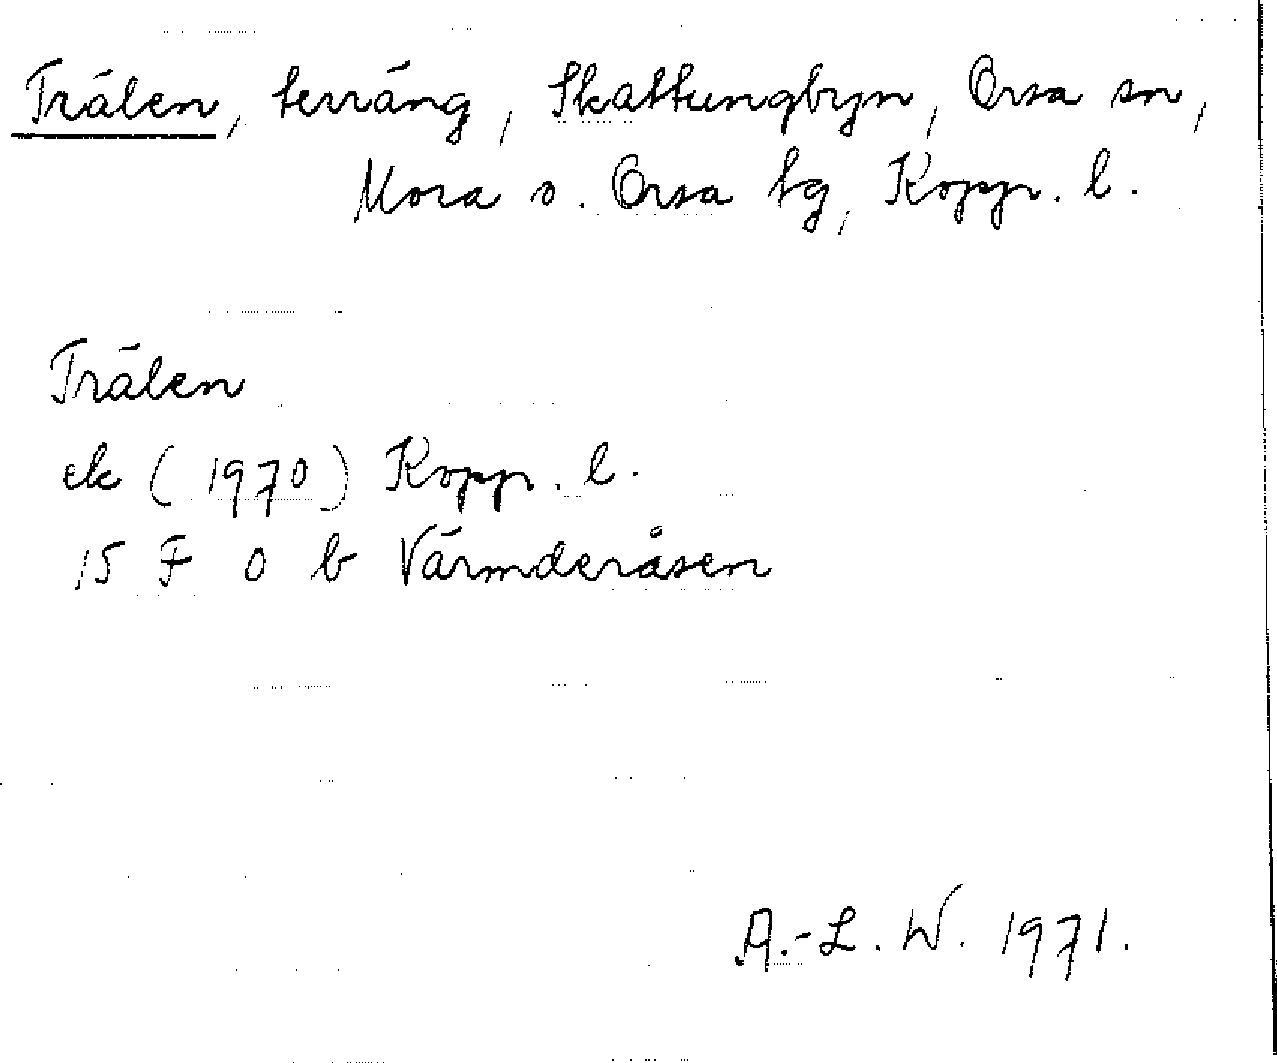 Trälen, terräng, Skattungbyn, Orsa sn,
Mora o. Orsa tg, Kopp. l.
Trälen
ek (1970) Kopp. l.
15 F 0 b Värmderåsen
A.-L. W. 1971.